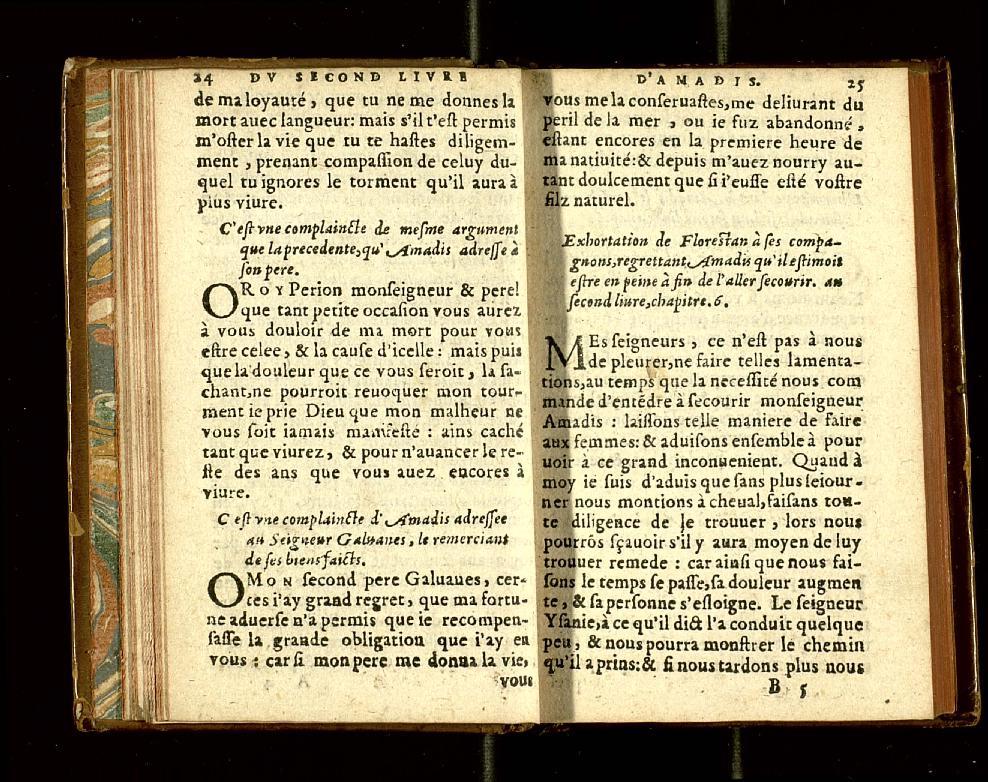 24 DV SECOND LIVRE
de ma loyauté, que tu ne me donnes la
mort auec langueur: mais s'il t'est permis
m'oster la vie que tu te hastes diligem-
ment, prenant compassion de celuy du-
quel tu ignores le torment qu'il aura à
plus viure.
C'est vne complaincte de mesme argument
que la precedente, qu'Amadis adresse à
son pere.
O ROY Perion monseigneur & pere!
que tant petite occasion vous aurez
à vous douloir de ma mort pour vous
estre celee, & la cause d'icelle: mais puis
que la douleur que ce vous seroit, la sa-
chant, ne pourroit reuoquer mon tour-
ment ie prie Dieu que mon malheur ne
vous soit iamais manifeste: ains caché
tant que viurez, & pour n'auancer le re-
ste des ans que vous auez encores à
viure.
C'est vne complaincte d'Amadis adressee
au Seigneur Galuanes, le remerciant
de ses biensfaicts.
O MON second pere Galuaues, cer-
tes i'ay grand regret, que ma fortu-
ne aduerse n'a permis que ie recompen-
sasse la grande obligation que i'ay eu
vous: car si mon pere me donna la vie,
vous
D'AMADIS. 25
vous me la conseruastes, me deliurant du
peril de la mer, ou ie fuz abandonné,
estant encores en la premiere heure de
ma natiuité: & depuis m'auez nourry au-
tant doulcement que si i'eusse esté vostre
filz naturel.
Exhortation de Florestan à ses compa-
gnons, regrettant Amadis qu'il estimoit
estre en peine à fin de l'aller secourir. au
second liure, chapitre. 6.
MEs seigneurs, ce n'est pas à nous
de pleurer, ne faire telles lamenta-
tions, au temps que la necessité nous com
mande d'entẽdre à secourir monseigneur
Amadis: laissons telle maniere de faire
aux femmes: & aduisons ensemble à pour
uoir à ce grand inconuenient. Quand à
moy ie suis d'aduis que sans plus seiour-
ner nous montions à cheual, faisans tou-
te diligence de le trouuer, lors nous
pourrõs sçauoir s'il y aura moyen de luy
trouuer remede: car ainsi que nous fai-
sons le temps se passe, sa douleur augmen
te, & sa personne s'esloigne. Le seigneur
Ysanie, à ce qu'il dict l'a conduit quelque
peu, & nous pourra monstrer le chemin
qu'il a prins: & si nous tardons plus nous
B 5